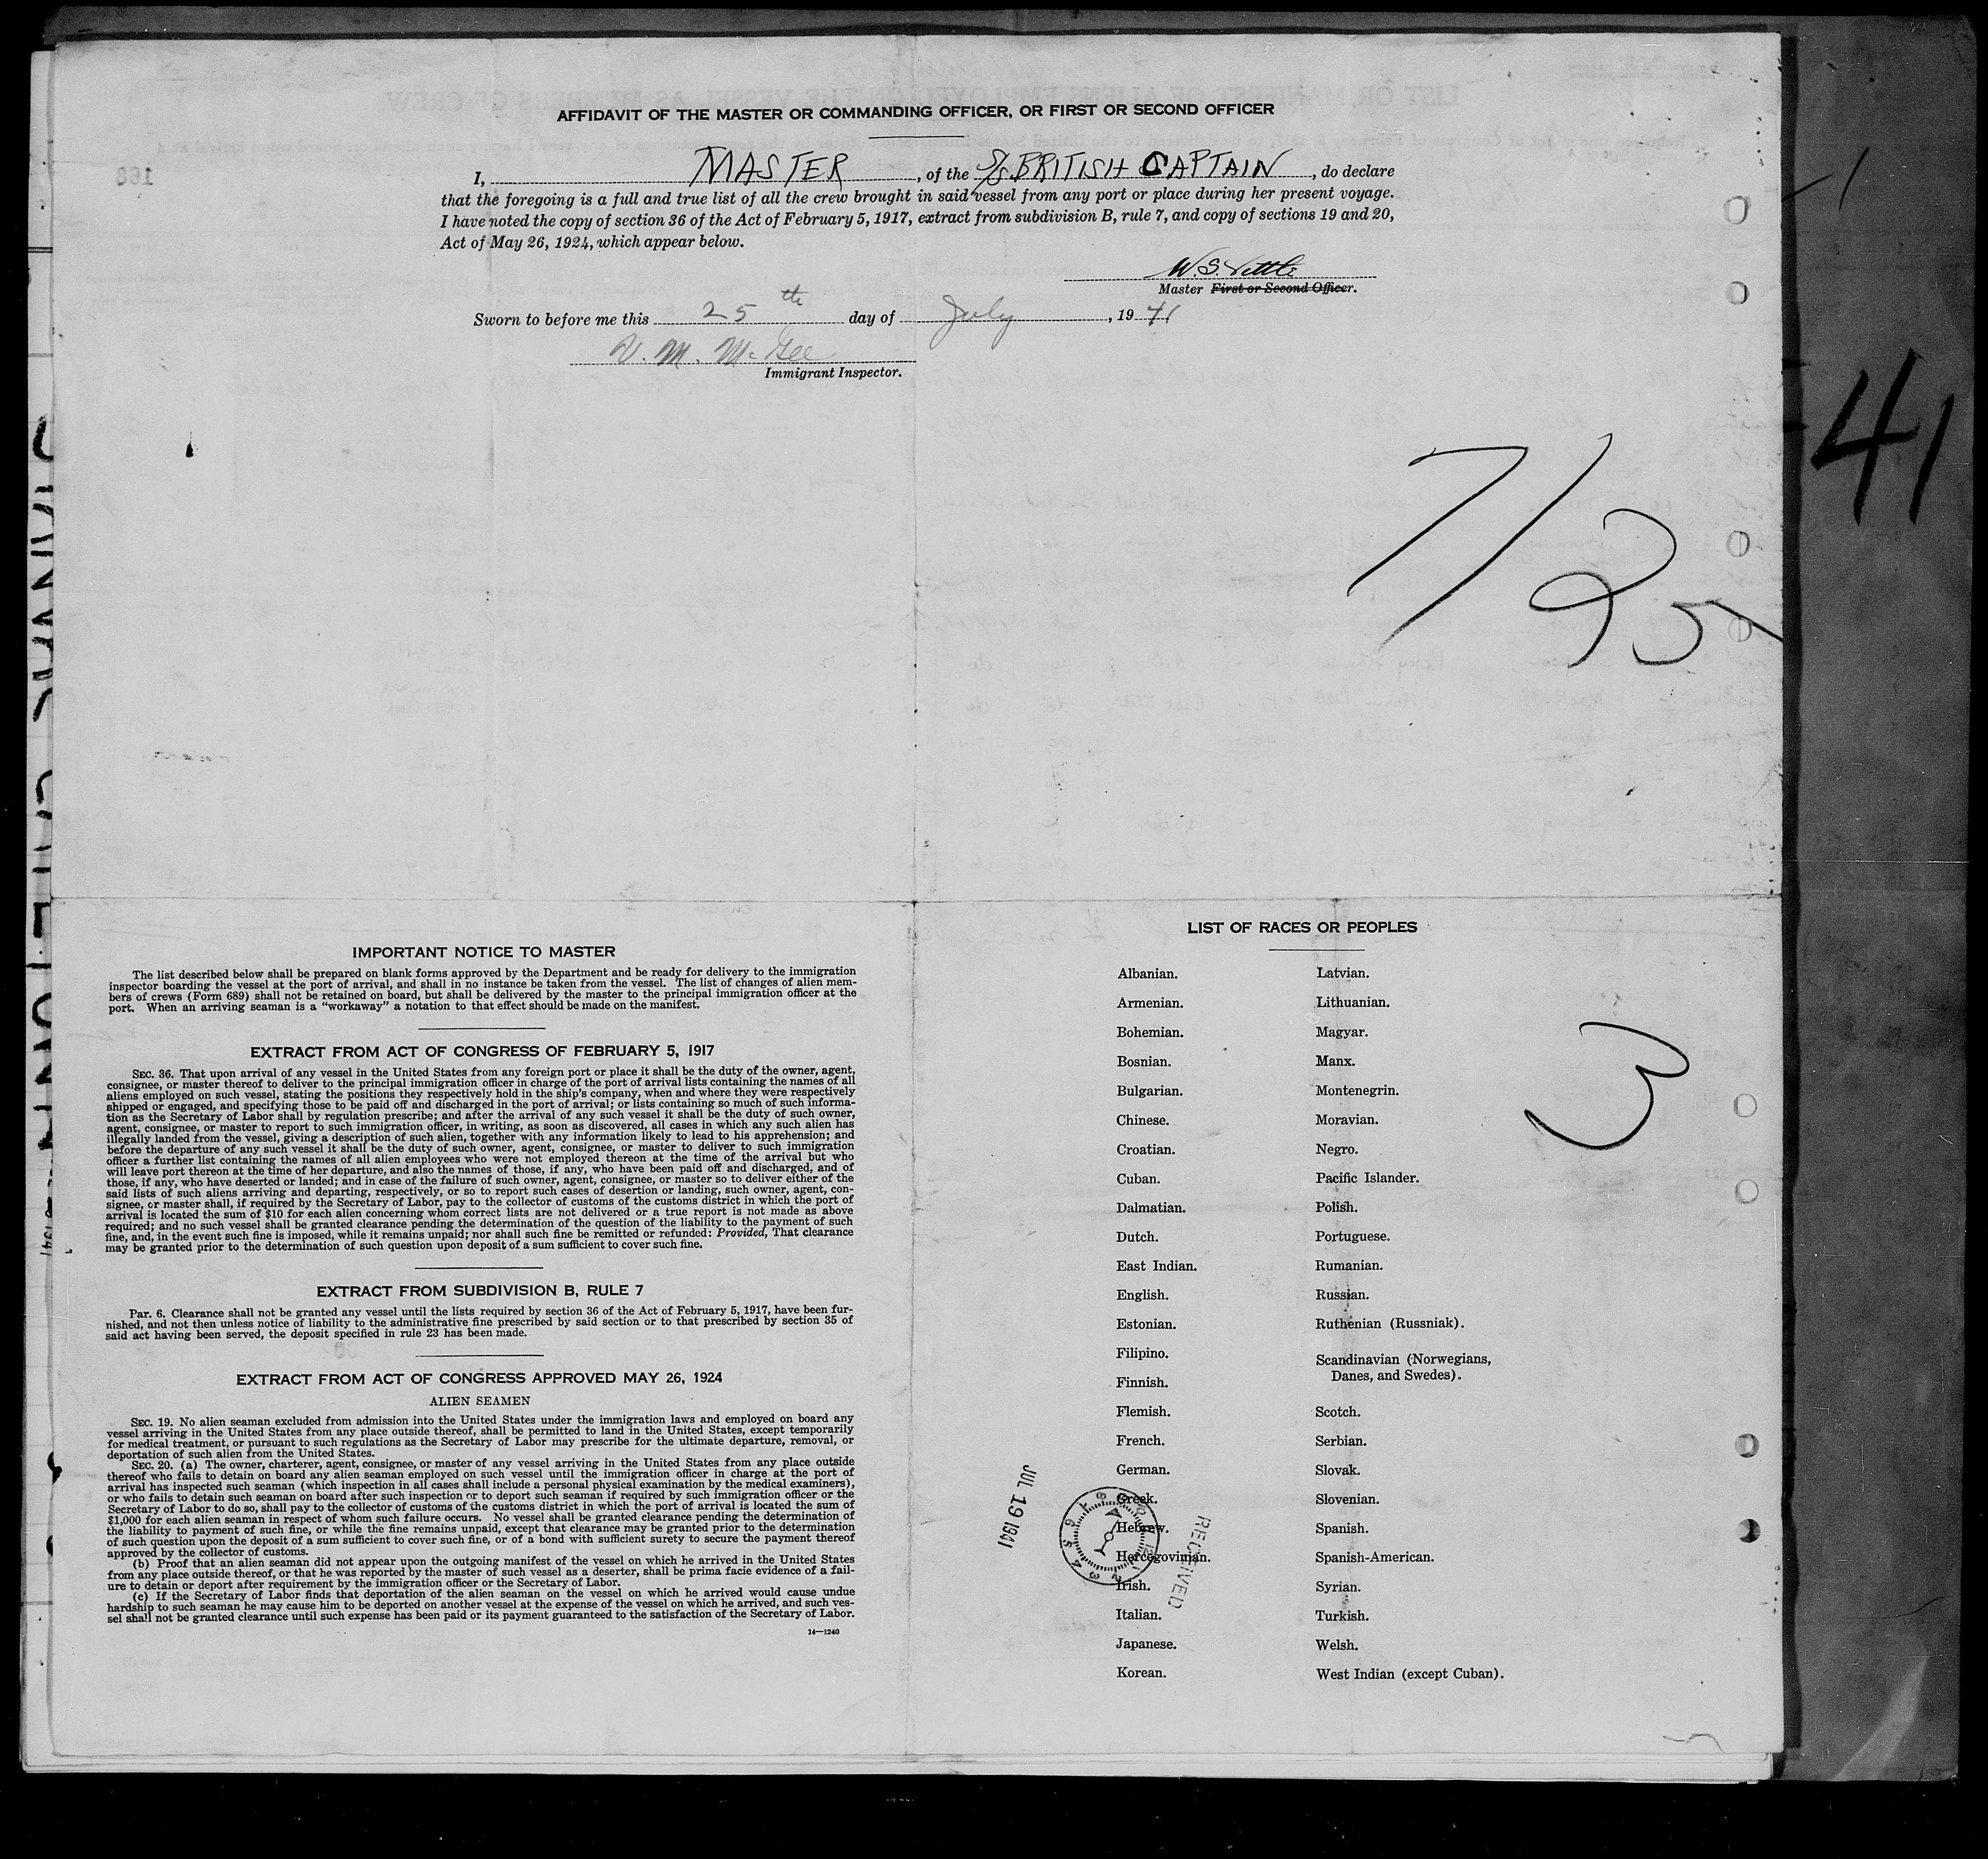 AFFIDAVIT OF THE MASTER OR COMMANDING OFFICER, OR FIRST OR SECOND OFFICER
I, MASTER, of the S/S BRITISH CAPTAIN, do declare
that the foregoing is a full and true list of all the crew brought in said vessel from any port or place during her present voyage.
I have noted the copy of section 36 of the Act of February 5, 1917, extract from subdivision B, rule 7, and copy of sections 19 and 20,
Act of May 26, 1924, which appear below.
W. S.
Master First or Second Officer.
Sworn to before me this 25th day of July, 1941
V. M. McGee
Immigrant Inspector.
7/25
41
IMPORTANT NOTICE TO MASTER
The list described below shall be prepared on blank forms approved by the Department and be ready for delivery to the immigration
inspector boarding the vessel at the port of arrival, and shall in no instance be taken from the vessel. The list of changes of alien mem-
bers of crews (Form 689) shall not be retained on board, but shall be delivered by the master to the principal immigration officer at the
port. When an arriving seaman is a "workaway" a notation to that effect should be made on the manifest.
EXTRACT FROM ACT OF CONGRESS OF FEBRUARY 5, 1917
SEC. 36. That upon arrival of any vessel in the United States from any foreign port or place it shall be the duty of the owner, agent,
consignee, or master thereof to deliver to the principal immigration officer in charge of the port of arrival lists containing the names of all
aliens employed on such vessel, stating the positions they respectively hold in the ship's company, when and where they were respectively
shipped or engaged, and specifying those to be paid off and discharged in the port of arrival; or lists containing so much of such informa-
tion as the Secretary of Labor shall by regulation prescribe; and after the arrival of any such vessel it shall be the duty of such owner,
agent, consignee, or master to report to such immigration officer, in writing, as soon as discovered, all cases in which any such alien has
illegally landed from the vessel, giving a description of such alien, together with any information likely to lead to his apprehension; and
before the departure of any such vessel it shall be the duty of such owner, agent, consignee, or master to deliver to such immigration
officer a further list containing the names of all alien employees who were not employed thereon at the time of the arrival but who
will leave port thereon at the time of her departure, and also the names of those, if any, who have been paid off and discharged, and of
those, if any, who have deserted or landed; and in case of the failure of such owner, agent, consignee, or master so to deliver either of the
said lists of such aliens arriving and departing, respectively, or so to report such cases of desertion or landing, such owner, agent, con-
signee, or master shall, if required by the Secretary of Labor, pay to the collector of customs of the customs district in which the port of
arrival is located the sum of $10 for each alien concerning whom correct lists are not delivered or a true report is not made as above
required; and no such vessel shall be granted clearance pending the determination of the question of the liability to the payment of such
fine, and, in the event such fine is imposed, while it remains unpaid; nor shall such fine be remitted or refunded: Provided, That clearance
may be granted prior to the determination of such question upon deposit of a sum sufficient to cover such fine.
EXTRACT FROM SUBDIVISION B, RULE 7
Par. 6. Clearance shall not be granted any vessel until the lists required by section 36 of the Act of February 5, 1917, have been fur-
nished, and not then unless notice of liability to the administrative fine prescribed by said section or to that prescribed by section 35 of
said act having been served, the deposit specified in rule 23 has been made.
EXTRACT FROM ACT OF CONGRESS APPROVED MAY 26, 1924
ALIEN SEAMEN
SEC. 19. No alien seaman excluded from admission into the United States under the immigration laws and employed on board any
vessel arriving in the United States from any place outside thereof, shall be permitted to land in the United States, except temporarily
for medical treatment, or pursuant to such regulations as the Secretary of Labor may prescribe for the ultimate departure, removal, or
deportation of such alien from the United States.
SEC. 20. (a) The owner, charterer, agent, consignee, or master of any vessel arriving in the United States from any place outside
thereof who fails to detain on board any alien seaman employed on such vessel until the immigration officer in charge at the port of
arrival has inspected such seaman (which inspection in all cases shall include a personal physical examination by the medical examiners),
or who fails to detain such seaman on board after such inspection or to deport such seaman if required by such immigration officer or the
Secretary of Labor to do so, shall pay to the collector of customs of the customs district in which the port of arrival is located the sum of
$1,000 for each alien seaman in respect of whom such failure occurs. No vessel shall be granted clearance pending the determination of
the liability to payment of such fine, or while the fine remains unpaid, except that clearance may be granted prior to the determination
of such question upon the deposit of a sum sufficient to cover such fine, or of a bond with sufficient surety to secure the payment thereof
approved by the collector of customs.
(b) Proof that an alien seaman did not appear upon the outgoing manifest of the vessel on which he arrived in the United States
from any place outside thereof, or that he was reported by the master of such vessel as a deserter, shall be prima facie evidence of a fail-
ure to detain or deport after requirement by the immigration officer or the Secretary of Labor.
(c) If the Secretary of Labor finds that deportation of the alien seaman on the vessel on which he arrived would cause undue
hardship to such seaman he may cause him to be deported on another vessel at the expense of the vessel on which he arrived, and such ves-
sel shall not be granted clearance until such expense has been paid or its payment guaranteed to the satisfaction of the Secretary of Labor.
14—1240
LIST OF RACES OR PEOPLES
Albanian.
Armenian.
Bohemian.
Bosnian.
Bulgarian.
Chinese.
Croatian.
Cuban.
Dalmatian.
Dutch.
East Indian.
English.
Estonian.
Filipino.
Finnish.
Flemish.
French.
German.
Greek.
Hebrew.
Hercegovinian.
Irish.
Italian.
Japanese.
Korean.
Latvian.
Lithuanian.
Magyar.
Manx.
Montenegrin.
Moravian.
Negro.
Pacific Islander.
Polish.
Portuguese.
Rumanian.
Russian.
Ruthenian (Russniak).
Scandinavian (Norwegians,
Danes, and Swedes).
Scotch.
Serbian.
Slovak.
Slovenian.
Spanish.
Spanish-American.
Syrian.
Turkish.
Welsh.
West Indian (except Cuban).
3
JUL 19 1941
RECEIVED